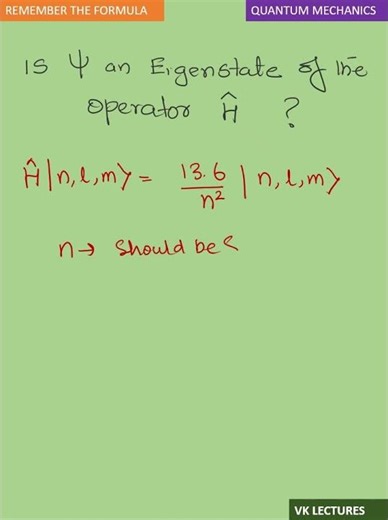 REMEMBER THE FORMULA
QUANTUM MECHANICS
Is ψ an Eigenstate of the
operator Ĥ ?
Ĥ|n,l,m⟩ = 13.6/n² |n,l,m⟩
n → should be s
VK LECTURES